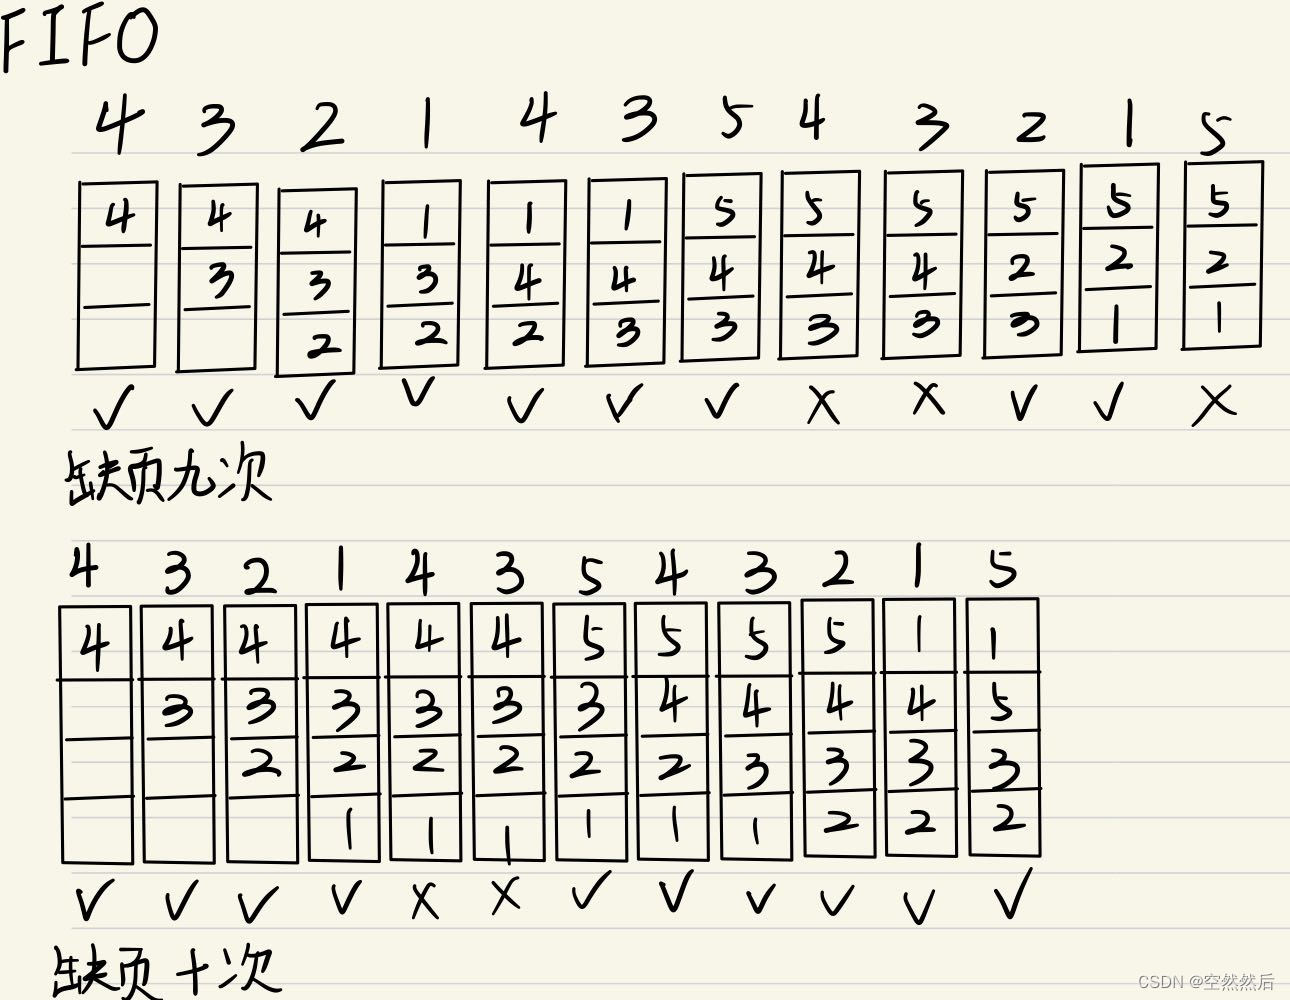 FIFO
4 3 2 1 4 3 5 4 3 2 1 5
4 4 4 1 1 1 5 5 5 5 5 5
3 3 3 4 4 4 4 4 2 2 2
2 2 2 3 3 3 3 3 1 1
✓ ✓ ✓ ✓ ✓ ✓ ✓ × × ✓ ✓ ×
缺页九次
4 3 2 1 4 3 5 4 3 2 1 5
4 4 4 4 4 4 5 5 5 5 1 1
3 3 3 3 3 3 4 4 4 4 5
2 2 2 2 2 2 3 3 3 3
1 1 1 1 1 1 2 2 2
✓ ✓ ✓ ✓ × × ✓ ✓ ✓ ✓ ✓ ✓
缺页十次
CSDN @空然然后